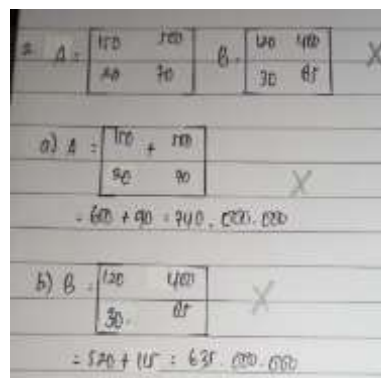 2. A = [150 500 B = [120 400 X
20 70] 30 85]
a) A = [150 + 500
20 70] X
= 650 + 90 = 740.000.000
b) B = [120 400
30. 85] X
= 520 + 115 = 635.000.000